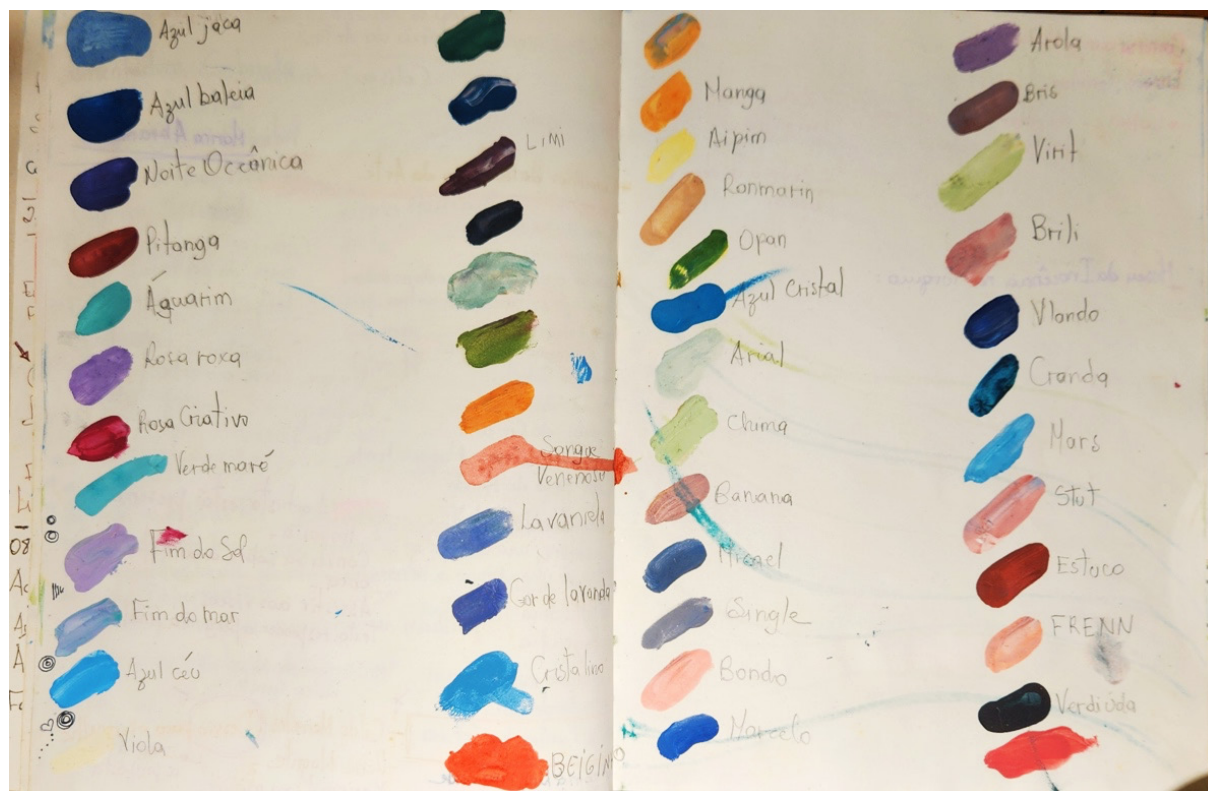 Azul jaca
Azul baleia
Noite Oceânica
Pitanga
Águarim
Rosa roxa
Rosa Criativo
Verde maré
Fim do Sol
Fim do mar
Azul céu
Viola
LIMI
Sangue
Venenoso
Lavanida
Cor de lavanda?
Cristalino
BEIGINHO
Manga
Aipim
Ranmarin
Opan
Azul Cristal
Arial
Chima
Banana
Micael
Single
Bondo
Marcelo
Arola
Bris
Virit
Brili
Vlando
Cranda
Mars
Stut
Estuco
FRENN
Verdiúda